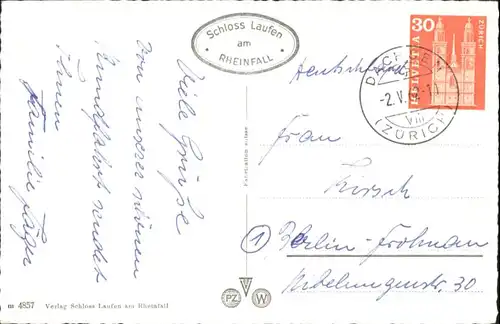 Schloss Laufen
am
RHEINFALL
Viele Grüße
von unserer schönen
Rundfahrt sendet
Ihnen
Familie Jäger
m 4857 Verlag Schloss Laufen am Rheinfall
Fabrication suisse
PZ W
30
HELVETIA
ZÜRICH
DACHSEN
-2.V.
VIII
(ZÜRICH)
Deutschland
Frau
Kirsch
1 Berlin-Frohnau
Nibelungenstr. 30